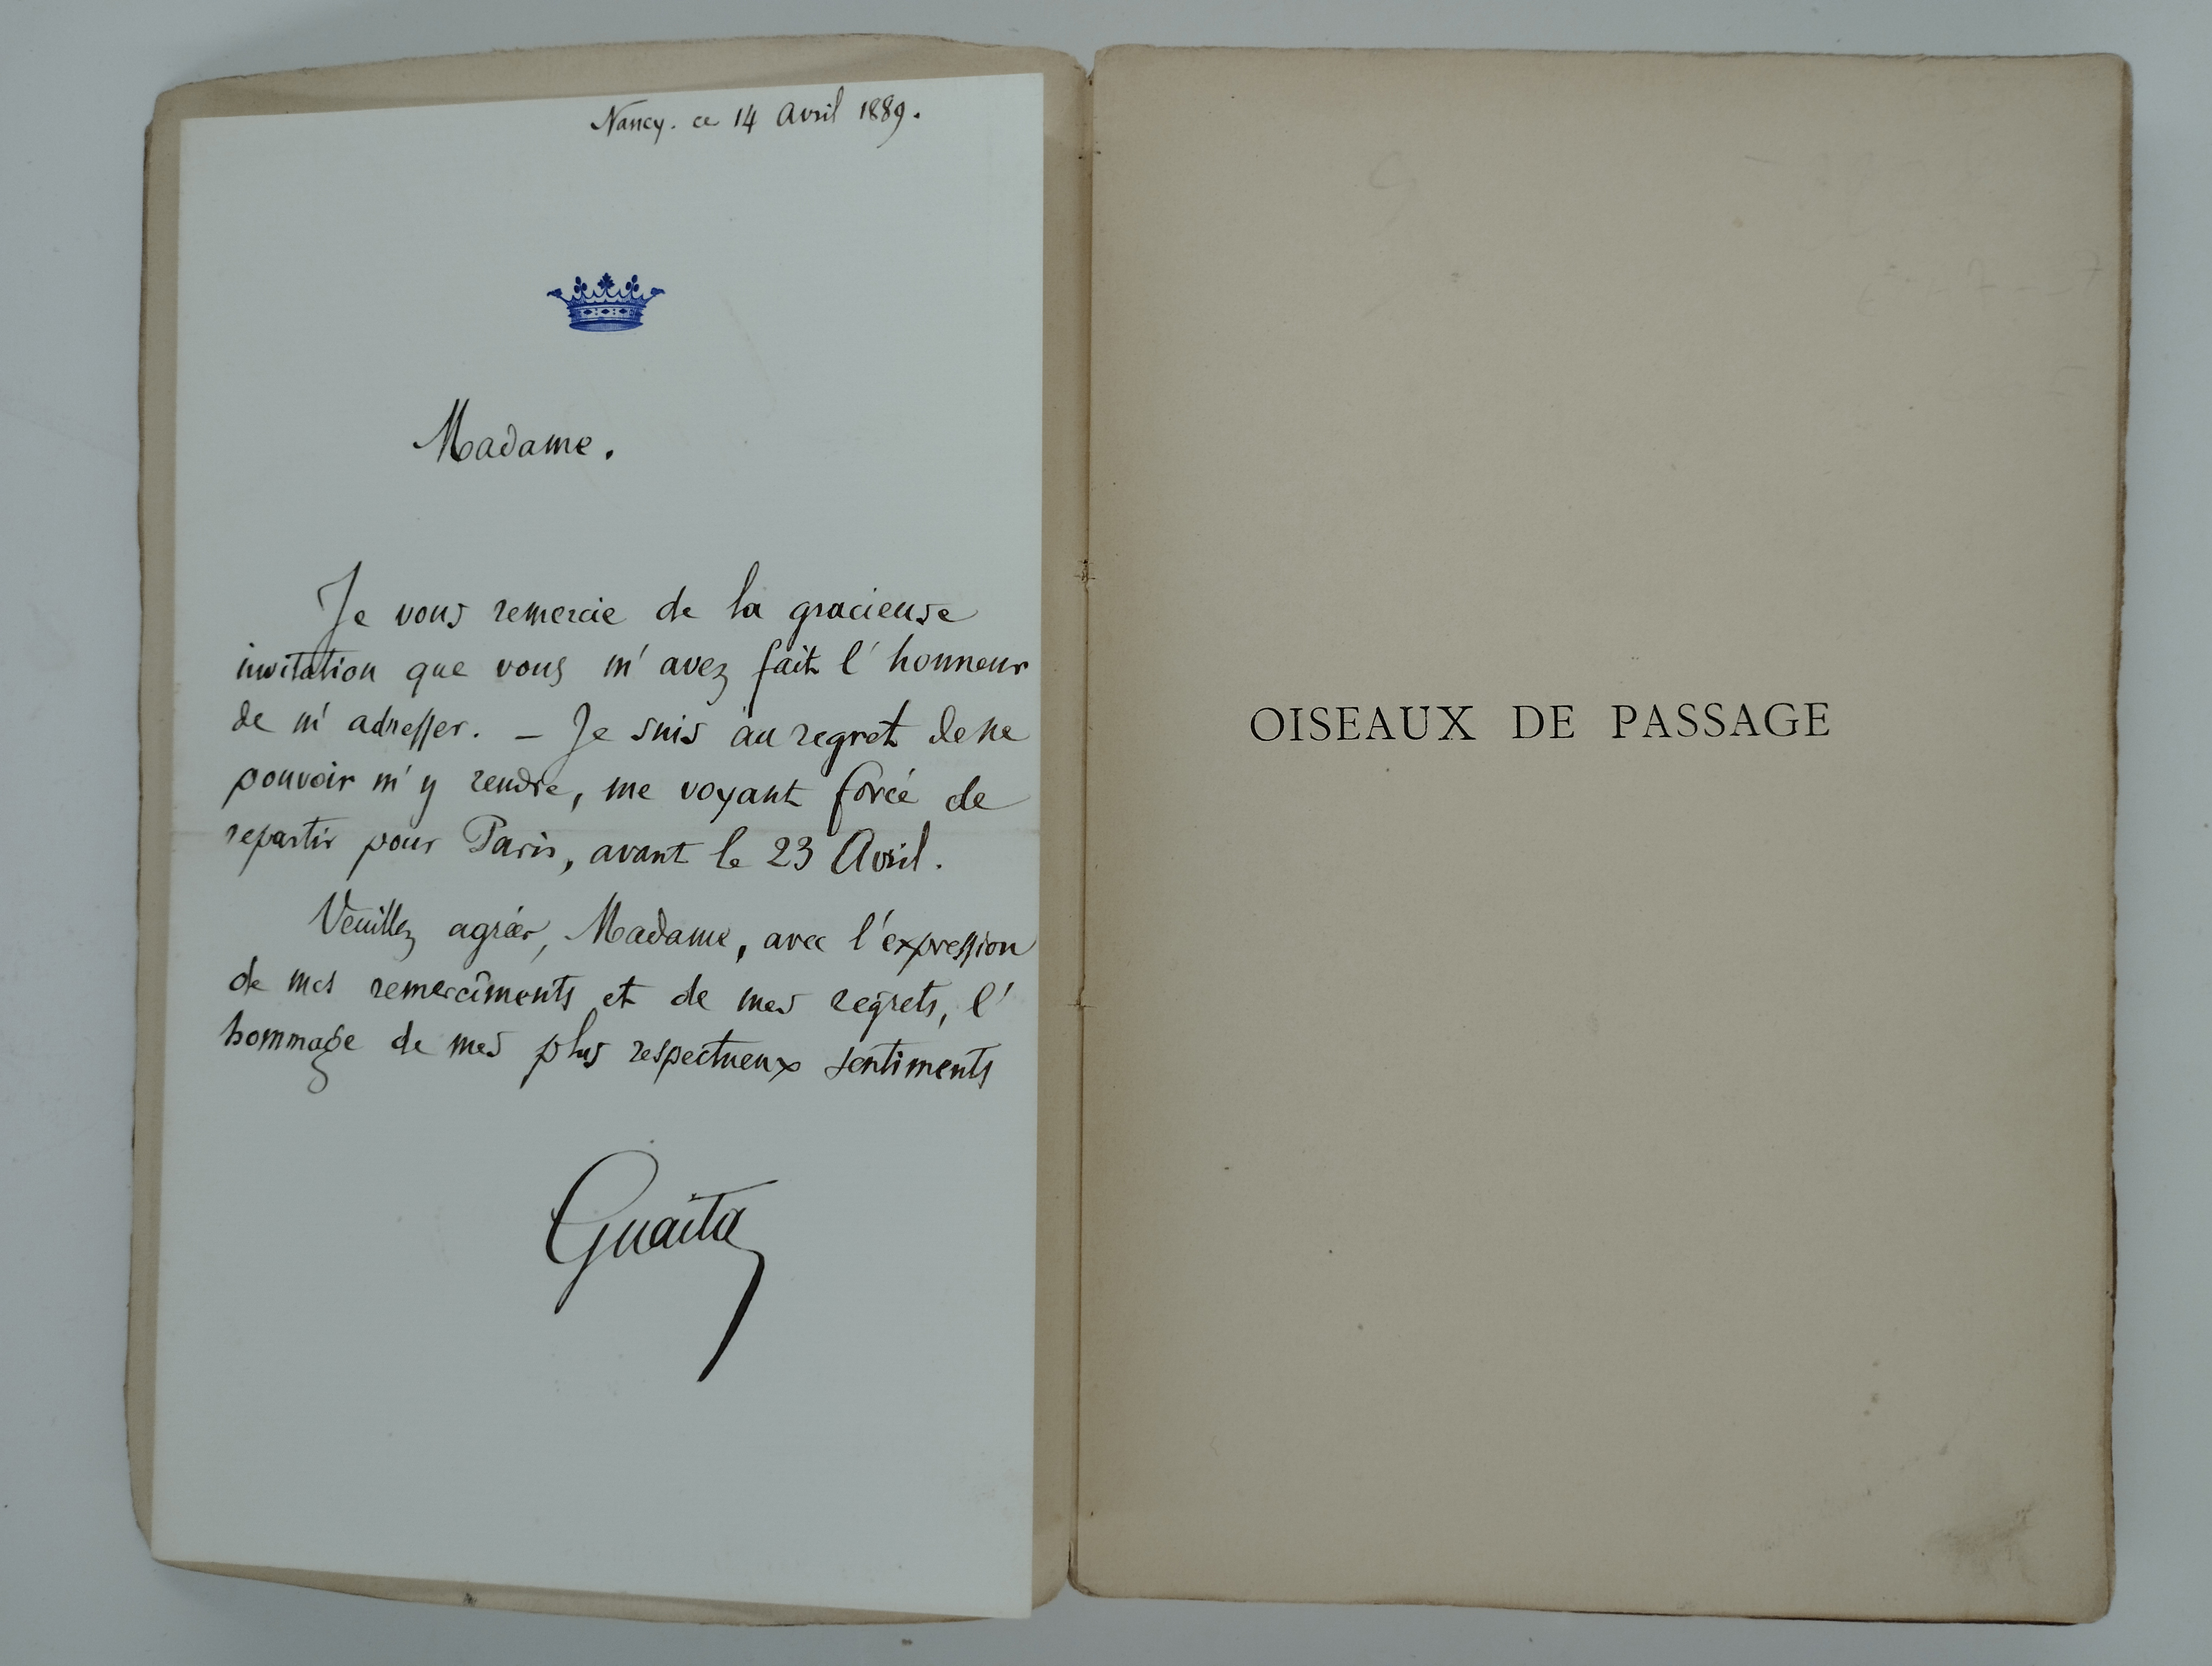 Nancy. ce 14 Avril 1889.
Madame.
Je vous remercie de la gracieuse
invitation que vous m'avez fait l'honneur
de m'adresser. – Je suis au regret de ne
pouvoir m'y rendre, me voyant forcé de
repartir pour Paris, avant le 23 Avril.
Veuillez agréer, Madame, avec l'expression
de mes remercîments et de mes regrets, l'
hommage de mes plus respectueux sentiments
Guaita
OISEAUX DE PASSAGE